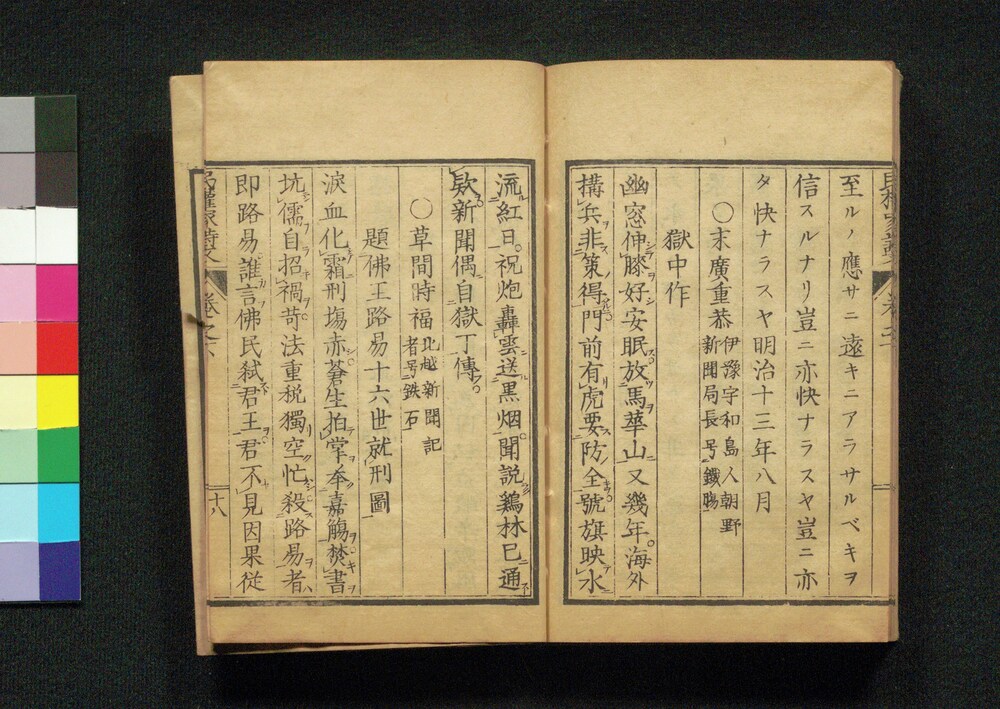 至ルノ應サニ遠キニアラサルベキヲ
信スルナリ豈ニ亦快ナラスヤ豈ニ亦
タ快ナラスヤ明治十三年八月
〇末廣重恭
伊豫宇和島人朝野
新聞局長号鐵膓
獄中作
幽窓伸膝好安眠放馬華山又幾年海外
搆兵非策得門前有虎要防全號旗映水
流紅日祝炮轟雲送黒烟聞説鷄林巳通
欵新聞偶自獄丁傳
〇草間時福
北越新聞記
者号鉄石
題佛王路易十六世就刑圖
淚血化霜刑塲赤蒼生拍掌奉嘉觴焚書
坑儒自招禍苛法重税獨空忙殺路易者
即路易誰言佛民弑君王君不見因果從
民權家詩文
卷之
十八